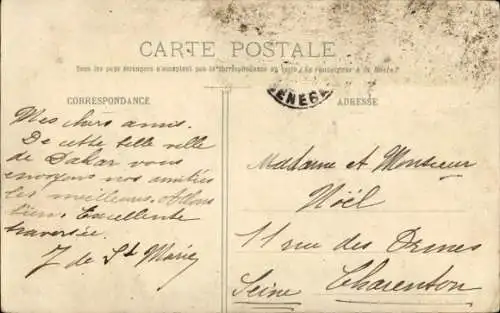 CARTE POSTALE
Tous les pays étrangers n'acceptent pas la correspondance au recto. (Se renseigner à la Poste)
CORRESPONDANCE
ADRESSE
Mes chers amis.
De cette belle ville
de Dakar vous
envoyons nos amitiés
les meilleures. Allons
bien. Excellente
traversée.
J de St Marie
Madame et Monsieur
Noël
11 rue des Ormes
Charenton
Seine